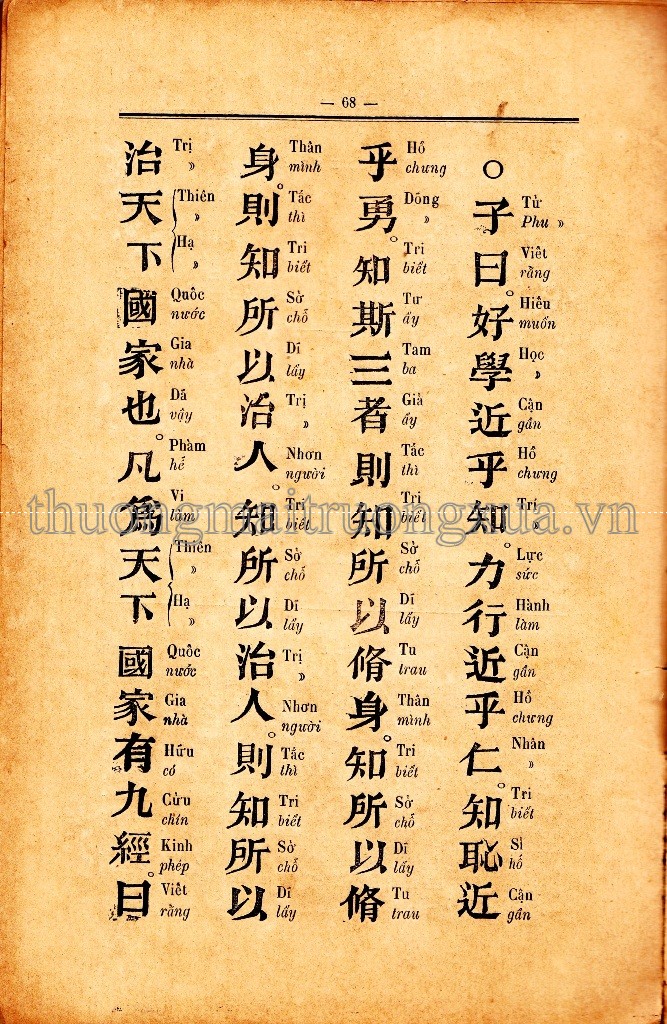 — 68 —
○子曰。好學近乎知。力行近乎仁。知恥近
Tử
Phu »
Viêt
rằng
Hiêu
muốn
Học
»
Cận
gần
Hồ
chưng
Trí
»
Lực
sức
Hành
làm
Cận
gần
Hồ
chưng
Nhân
»
Tri
biết
Sỉ
hổ
Cận
gần
乎勇。知斯三者則知所以脩身。知所以脩
Hồ
chưng
Dóng
»
Tri
biết
Tư
ấy
Tam
ba
Giả
ấy
Tắc
thì
Tri
biết
Sở
chỗ
Dĩ
lấy
Tu
trau
Thân
mình
Tri
biết
Sở
chỗ
Dĩ
lấy
Tu
trau
身。則知所以治人。知所以治人。則知所以
Thân
mình
Tắc
thì
Tri
biết
Sở
chỗ
Dĩ
lấy
Trị
»
Nhơn
người
Tri
biết
Sở
chỗ
Dĩ
lấy
Trị
»
Nhơn
người
Tắc
thì
Tri
biết
Sở
chỗ
Dĩ
lấy
治天下國家也。凡爲天下國家有九經。曰
Trị
»
Thiên
»
Hạ
»
Quốc
nước
Gia
nhà
Dã
vậy
Phàm
hễ
Vi
làm
Thiên
»
Hạ
»
Quốc
nước
Gia
nhà
Hữu
có
Cửu
chín
Kinh
phép
Viêt
rằng
thuongmaitruongxua.vn